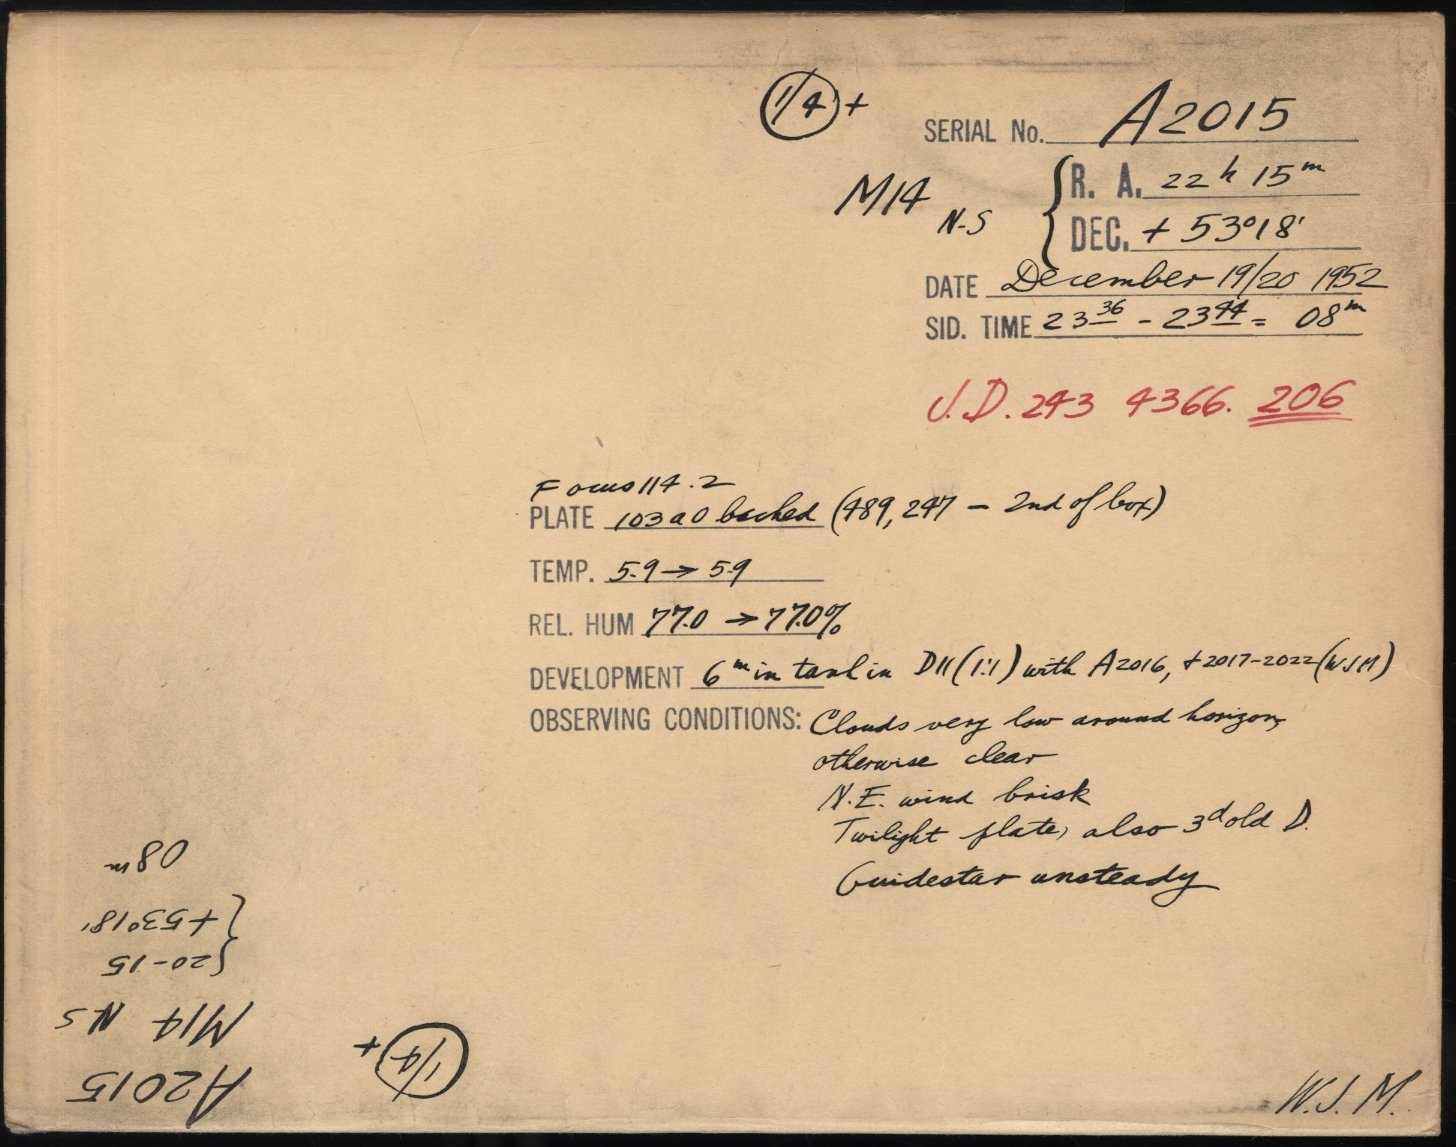 1/4 +
SERIAL No. A2015
M14 N-S
{ R. A. 22 h 15 m
DEC. + 53°18'
DATE December 19/20 1952
SID. TIME 23 36 - 23 44 = 08 m
J.D. 243 4366. 206
Focus 114.2
PLATE 103aO backed (489, 247 - 2nd of box)
TEMP. 5.9 → 5.9
REL. HUM 77.0 → 77.0%
DEVELOPMENT 6 m in tank in D11 (1:1) with A2016, + 2017-2022 (WJM)
OBSERVING CONDITIONS: Clouds very low around horizon,
otherwise clear
N.E. wind brisk
Twilight plate, also 3 d old D.
Guidestar unsteady
W.J.M.
A2015
1/4 +
M14 N-S
{ 20-15
+ 53°18'
08 m